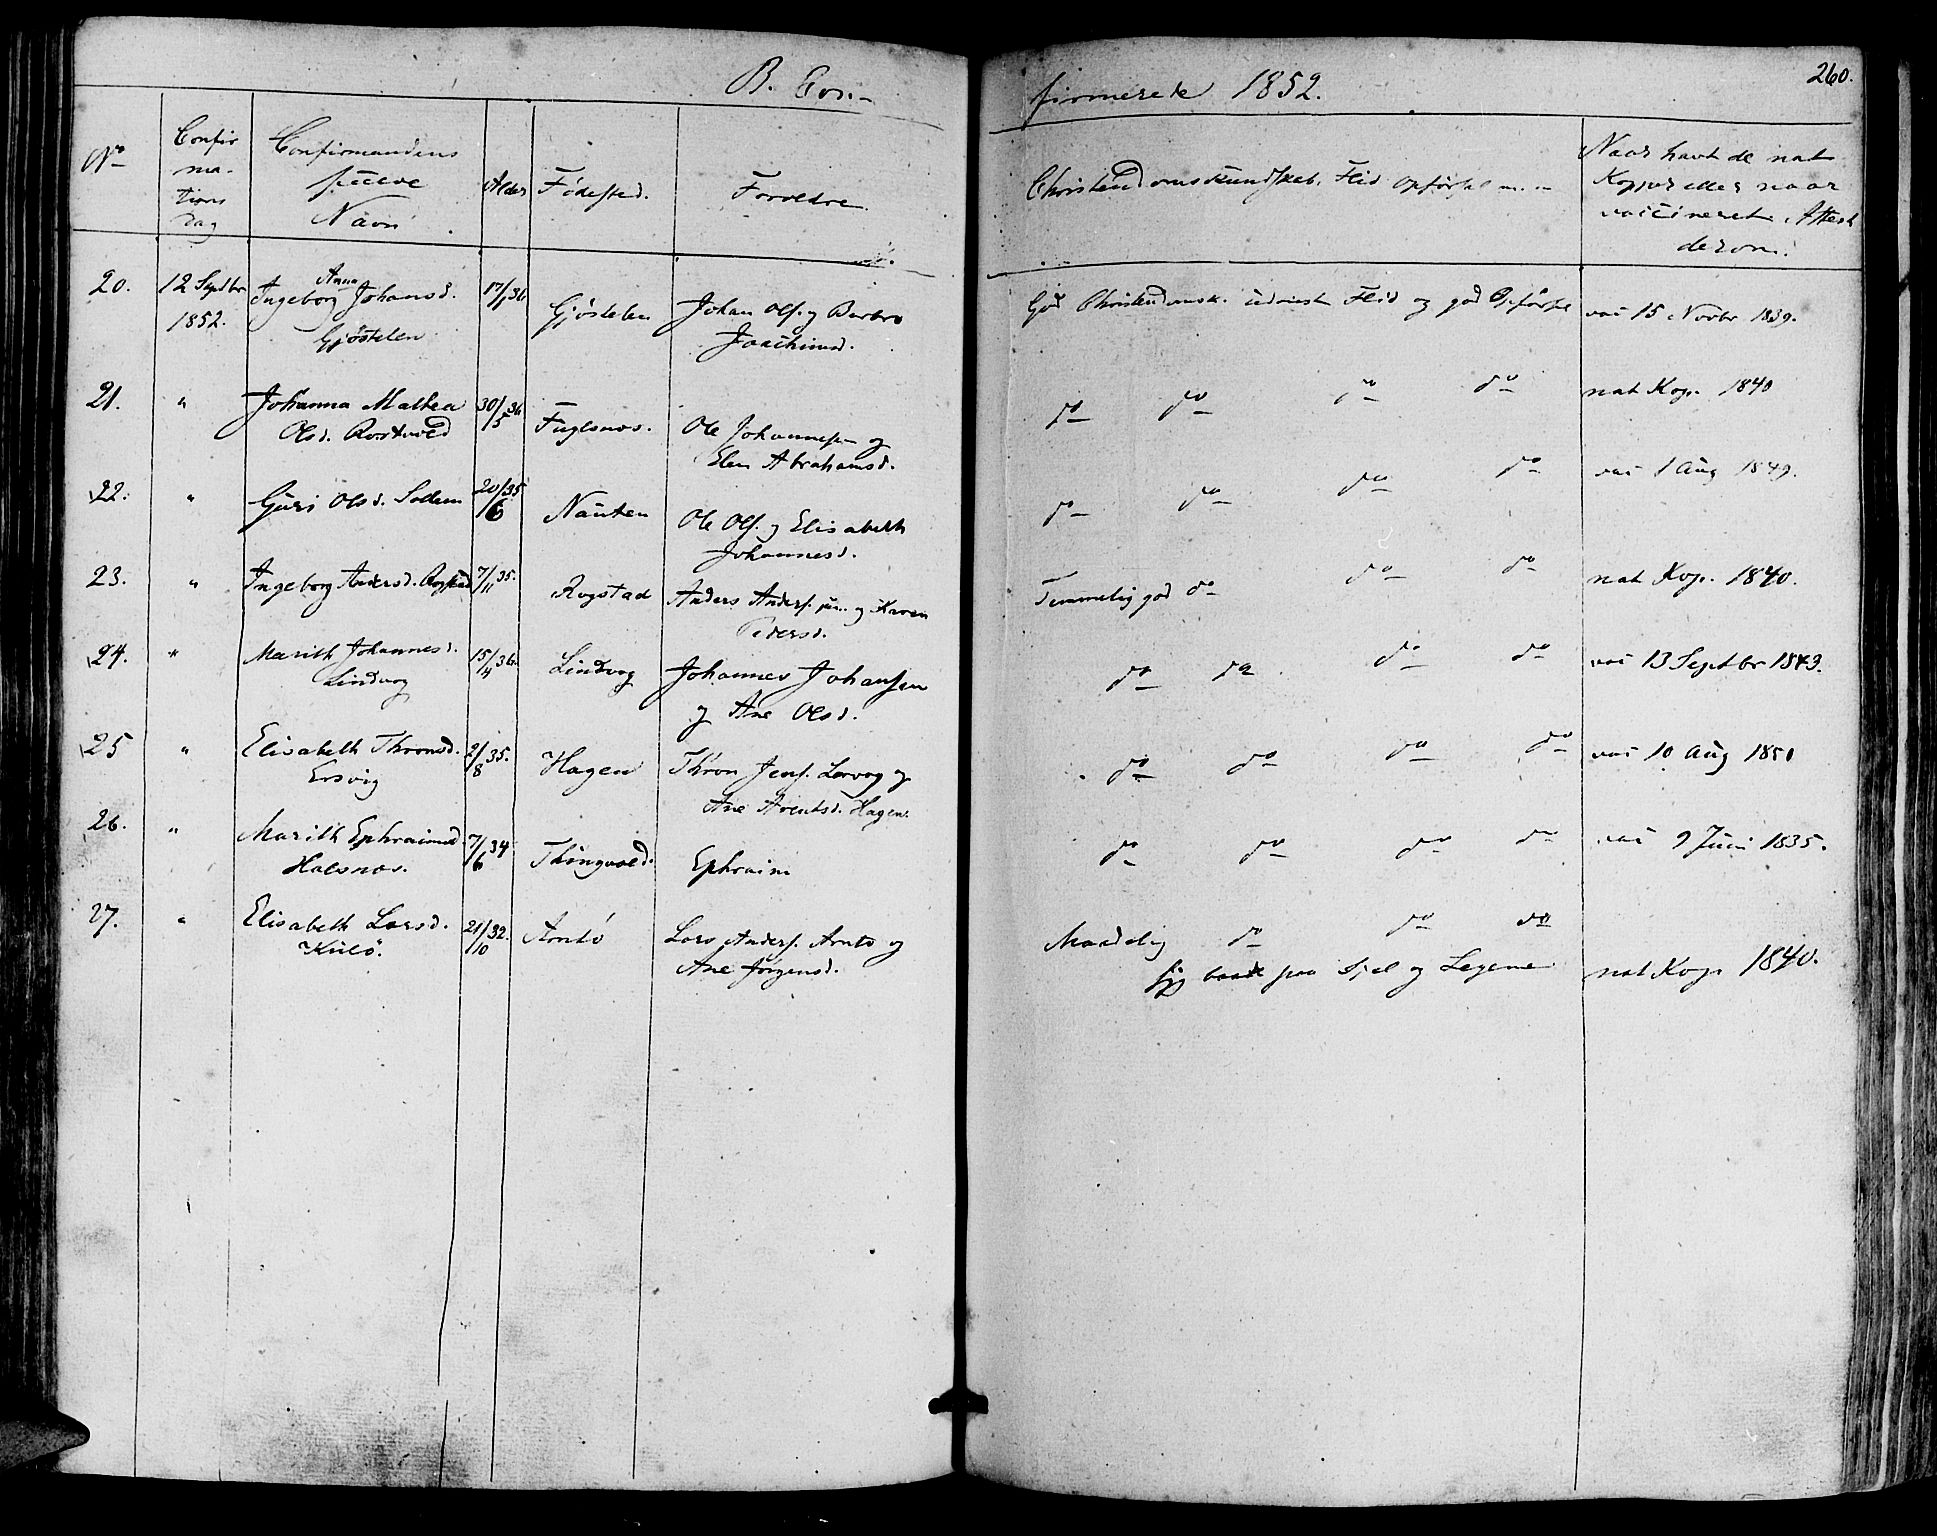 B. Con-
firmerede 1852.
260.
No
Confir
ma-
tions
Dag
Confirmandens
fulde
Navn
Alder
Fødested.
Forældre.
Christendomskundskab, Flid Opførsel m. m
Naar havt de nat
Kopper eller naar
vaccineret. Attest
derom.
20. 12 Septbr 1852. Anna Ingeborg Johansd. 17/1 36 Gjöstelen Johan Ols. og Barbro
Gjöstelen Joachimsd.
God Christendomsk. udviist Flid og god Opførsel vac 15 Novbr 1839.
21. " Johanna Mathea 30/5 36 Fuglsnes. Ole Johannesen og
Olsd. Elen Abrahamsd.
do do do do nat Kop. 1840
22. " Guri Olsd. Sollem 20/6 35 Nauten Ole Ols. og Elisabeth
Johannesd.
do do do do vac 1 Aug 1849.
23. " Ingeborg Andersd. Rogstad 7/11 35. Rogstad Anders Anders. jun. og Karen
Pedersd.
Temmelig god do do do nat Kop. 1840.
24. " Marith Johannesd. 15/4 36. Lindvog Johannes Johansen
Lindvog og Ane Olsd.
do do do do vac 13 Septbr 1843.
25 " Elisabeth Thronsd. 2/8 35. Hagen Thron Jens. Lervog og
Ersvig Ane Arentsd. Hagen.
do do do do vac 10 Aug 1851
26. " Marith Ephraimsd 7/6 34 Thingvold. Ephraim
Halsnes.
do do do do vac 9 Juni 1835.
27. " Elisabeth Larsd. 21/10 32. Arntö Lars Anders. Arntö og
Kulö. Ane Jörgensd.
Maadelig do do do
syg baade paa Sjel og Legeme nat Kop 1840.